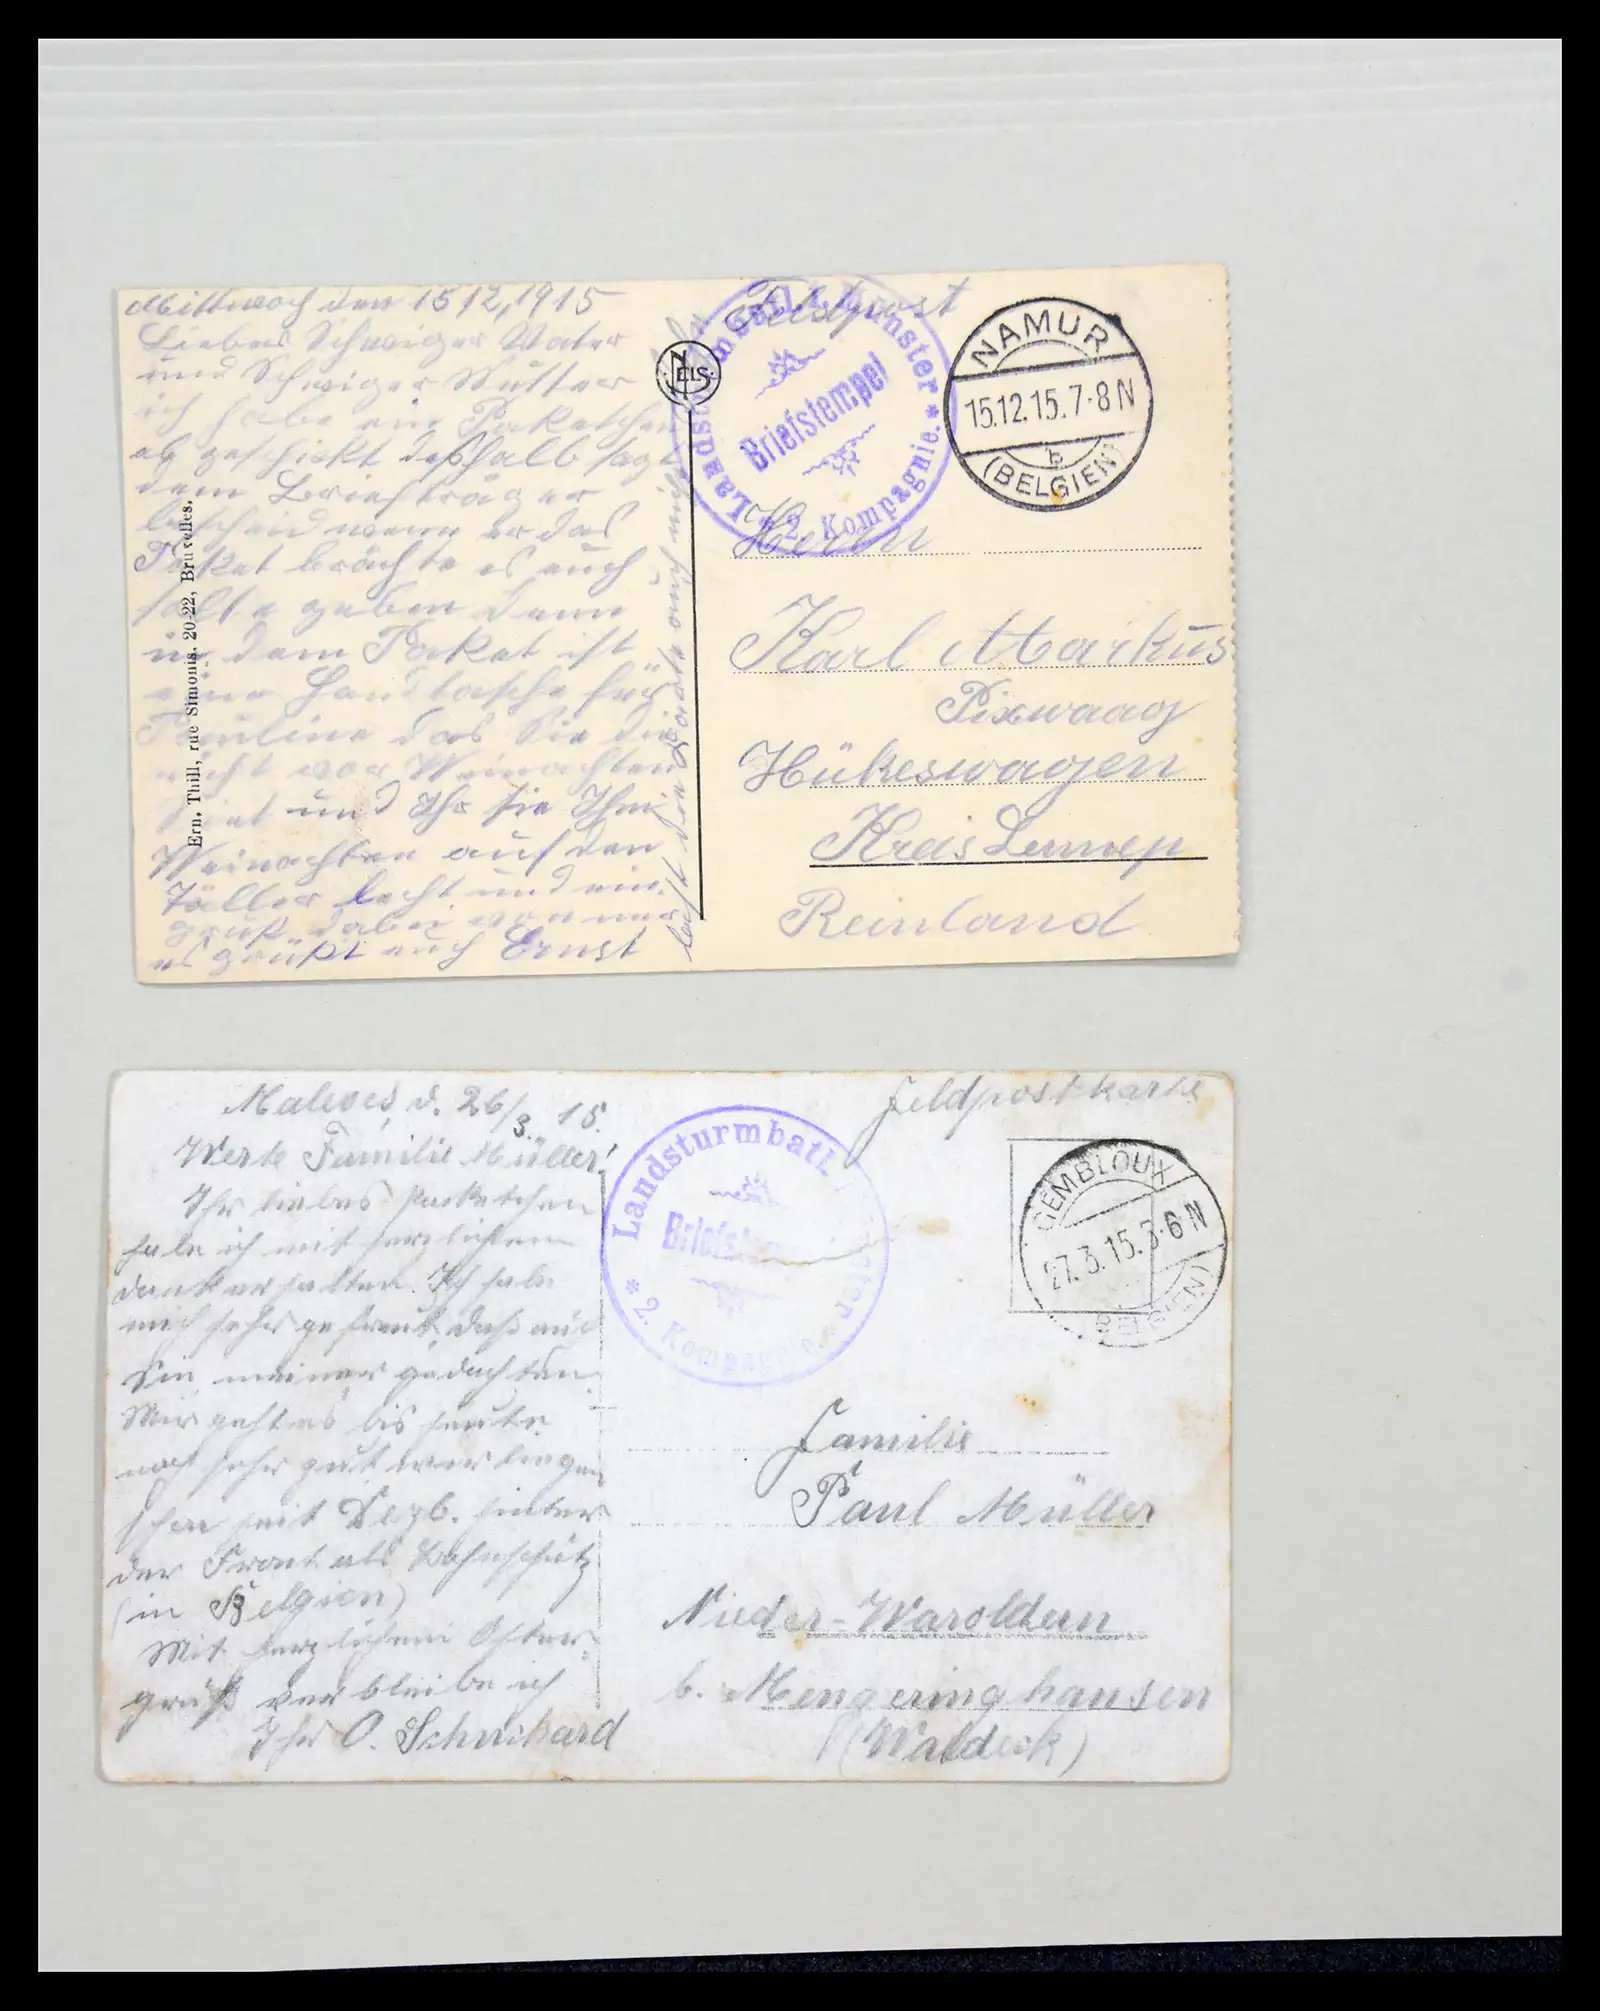 Mittwoch den 15 12, 1915
Lieber Schwiger Vater
und Schwiger Mutter
ich habe ein Paketchen
ab geschickt deßhalb sagt
dem Briefträger
bescheid wenn er das
Paket brächte er euch
sollte geben denn
in dem Paket ist
eine Handtasche für
Pauline das Sie die
nicht vor Weinachten
und Ihr sie Ihm
Weinachten auf den
Täller lecht und ein
gruß dabei von mir
es grüßt euch Ernst
laßt die Karte auch nicht
Ern. Thill, rue Simonis, 20-22, Bruxelles.
NELS
Feldpost
Landsturmbatl. I Munster
Briefstempel
* 2. Kompagnie. *
NAMUR
15.12.15.7-8N
b
(BELGIEN)
Herrn
Karl Markus
Pixwaag
Hükeswagen
Kreis Lennep
Reinland
Maleves, d. 26/3. 15.
Werte Familie Müller!
Ihr liebes Packetchen
habe ich mit herzlichem
dank erhalten. Ich habe
mich sehr gefreut, daß auch
Sie meiner gedachten.
Mir geht es bis heute
noch sehr gut, wir liegen
schon seit Dezb. hinter
der Front als Bahnschutz
(in Belgien)
Mit herzlichem Oster-
gruß verbleibe ich
Ihr O. Schuchard
Feldpostkarte
Landsturmbatl. I
Briefstem
* 2. Kompagnie. *
GEMBLOUX
27.3.15.3-6N
(BELGIEN)
Familie
Paul Müller
Nieder-Waroldern
b. Mengeringhausen
(Waldeck)